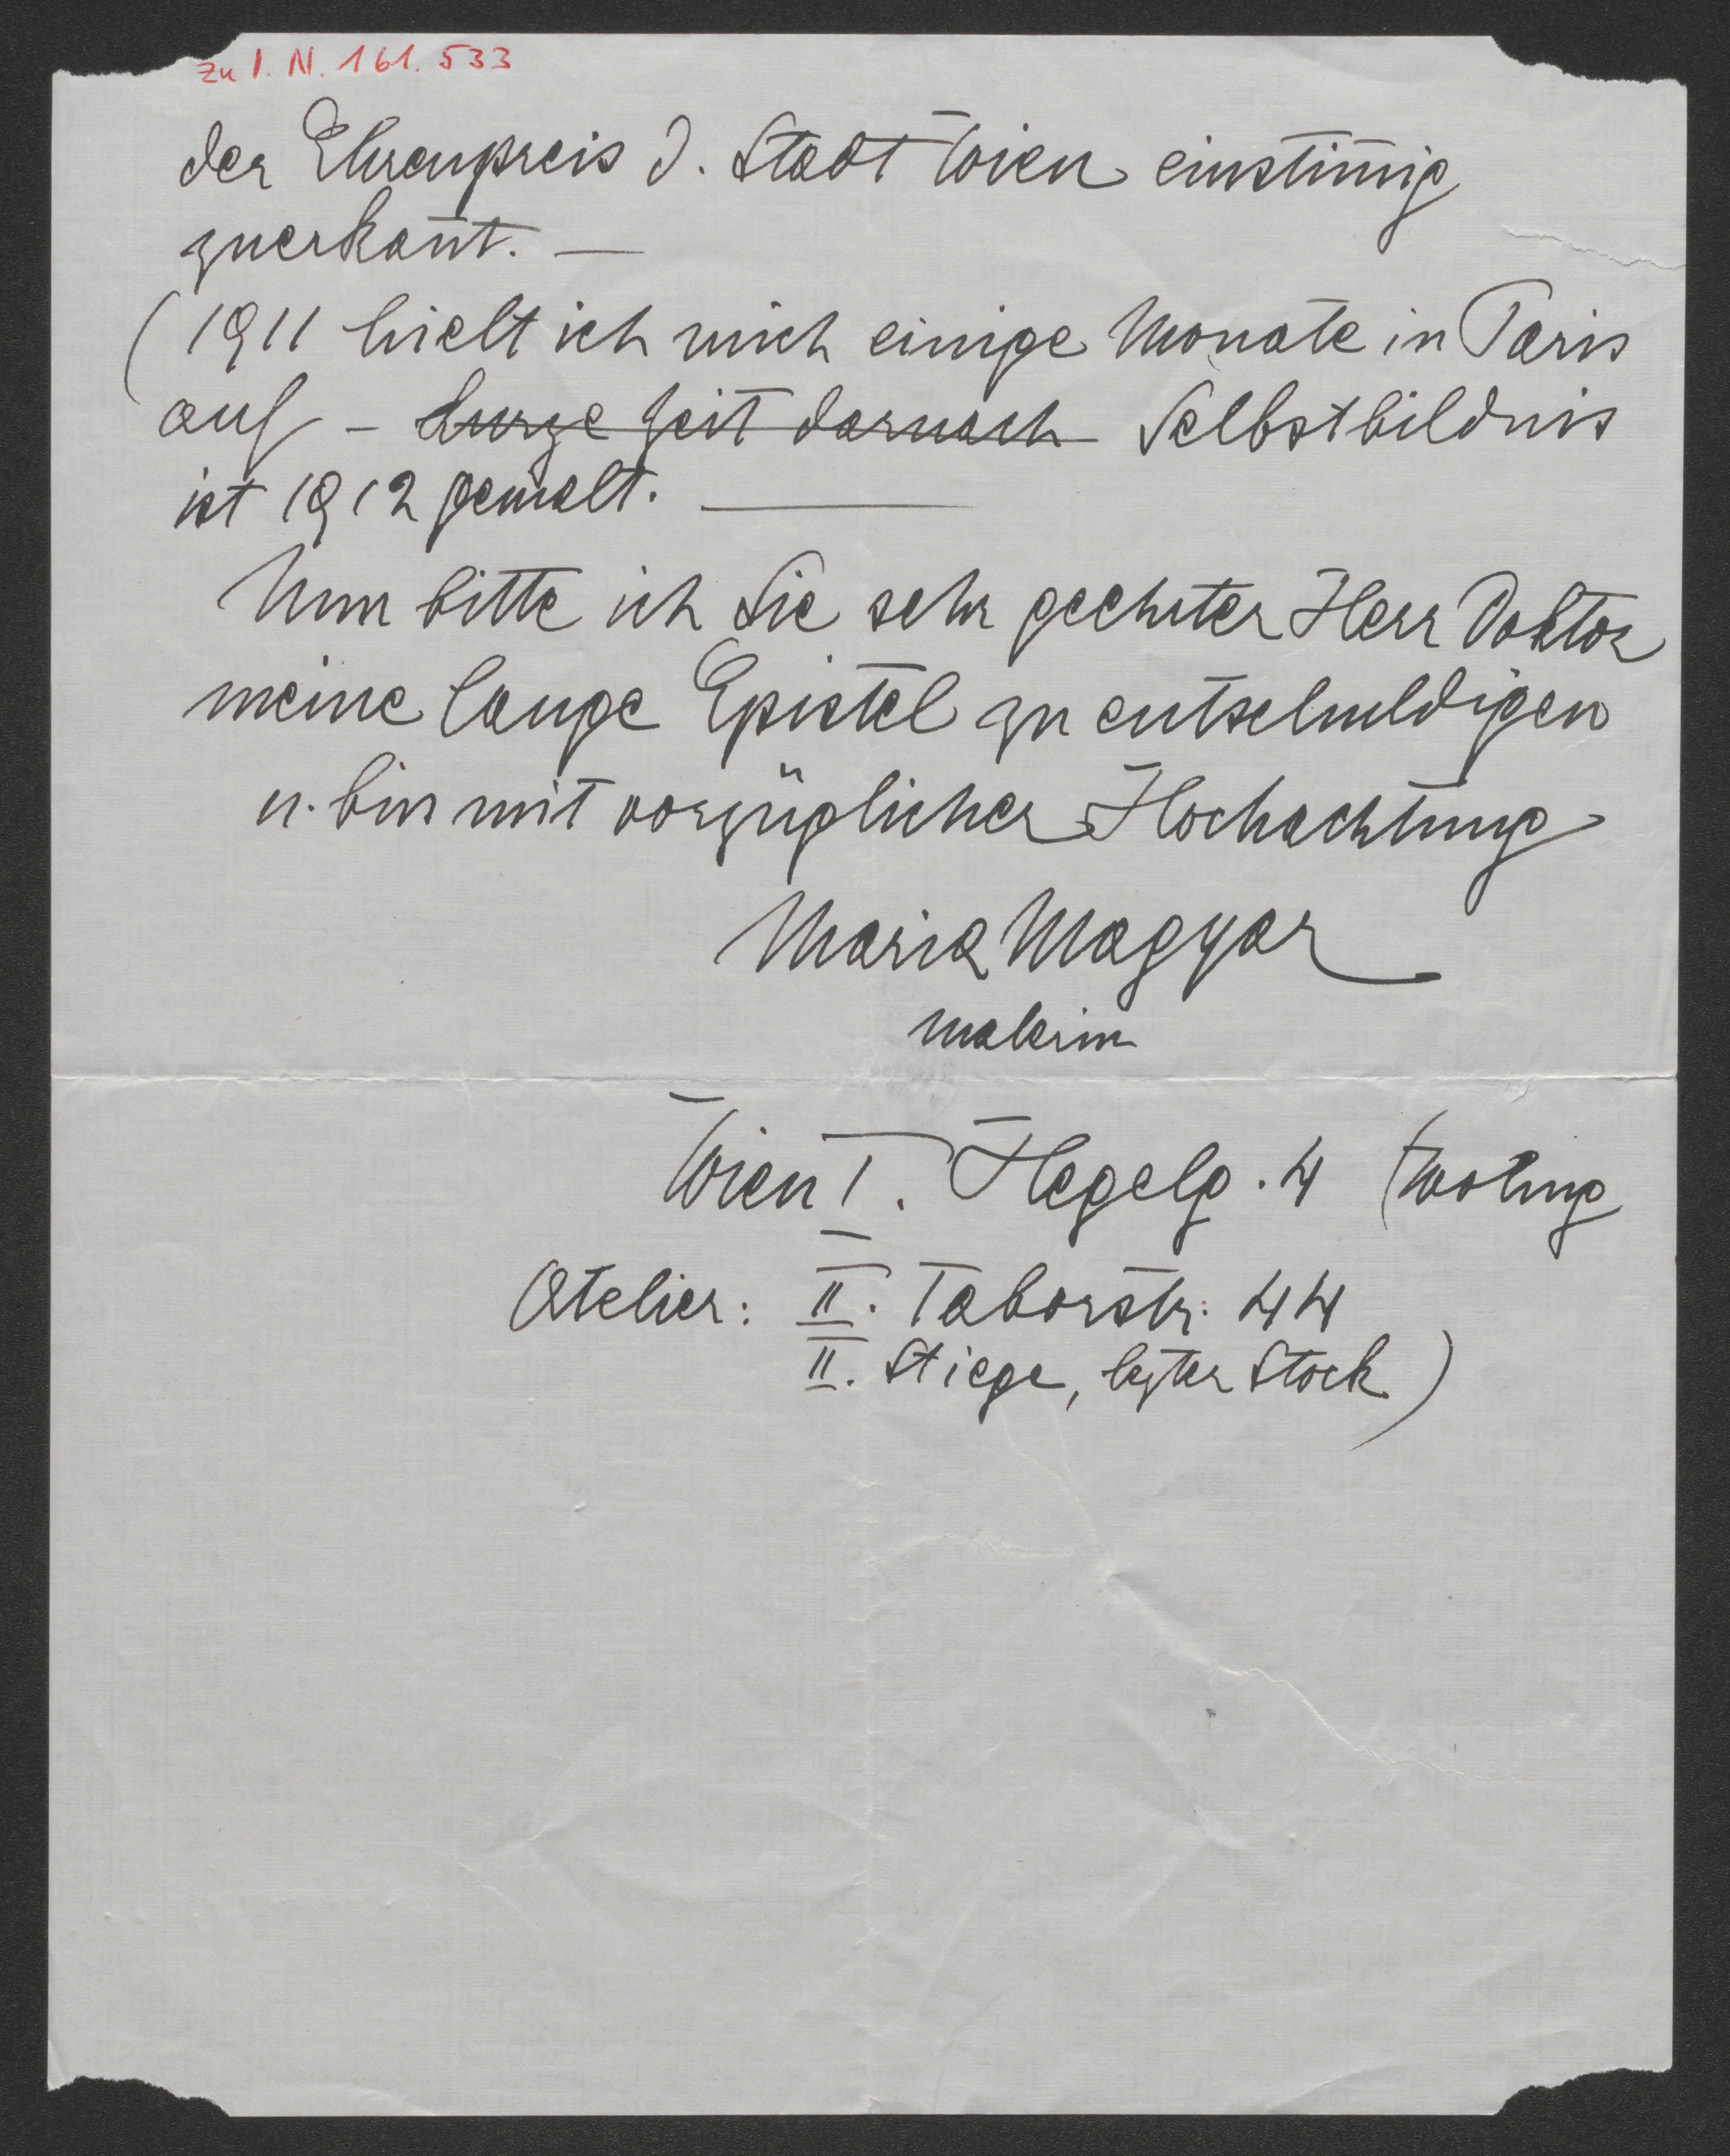 zu I. N. 161.533
der Ehrenpreis d. Stadt Wien einstim̄ig
zuerkan̄t. —
(1911 hielt ich mich einige Monate in Paris
auf – kurze Zeit darnach Selbstbildnis
ist 1912 gemalt. —
Nun bitte ich Sie sehr geehrter Herr Doktor
meine lange Epistel zu entschuldigen
u. bin mit vorzüglicher Hochachtung
Maria Magyar
malerin
Wien I. Hegelg. 4 (Wohng
Atelier: II. Taborstr. 44
II. Stiege, letzter Stock)